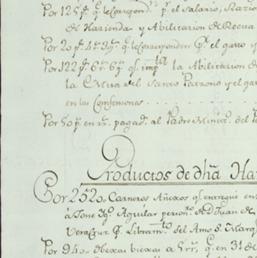 Por 125 p.s q.e le correspond.n p.r el salario, Razio
de Hazienda y Abilitacion de Recua
Por 20 p.s 4 r.s 3 g.s q.e le corresponden p.r el gasto y
Por 122 p.s 0 r.s 6 g.s q.e imp.ta la Abilitacion de
la Misa del Santo Patrono y el gas
en las Confesiones
Por 50 p.s en r.s pagad.s al Padre Minist.o del P
Productos de dha Ha
Por 2520 Carneros Añexos q.e entregue en
à Jose Ign.o Aguilar person.o de D.n Juan de
Veracruz p.r Libram.to del Amo S. Marq
Por 940 Obexas biexas a 5 rr.s q.e en 31 de